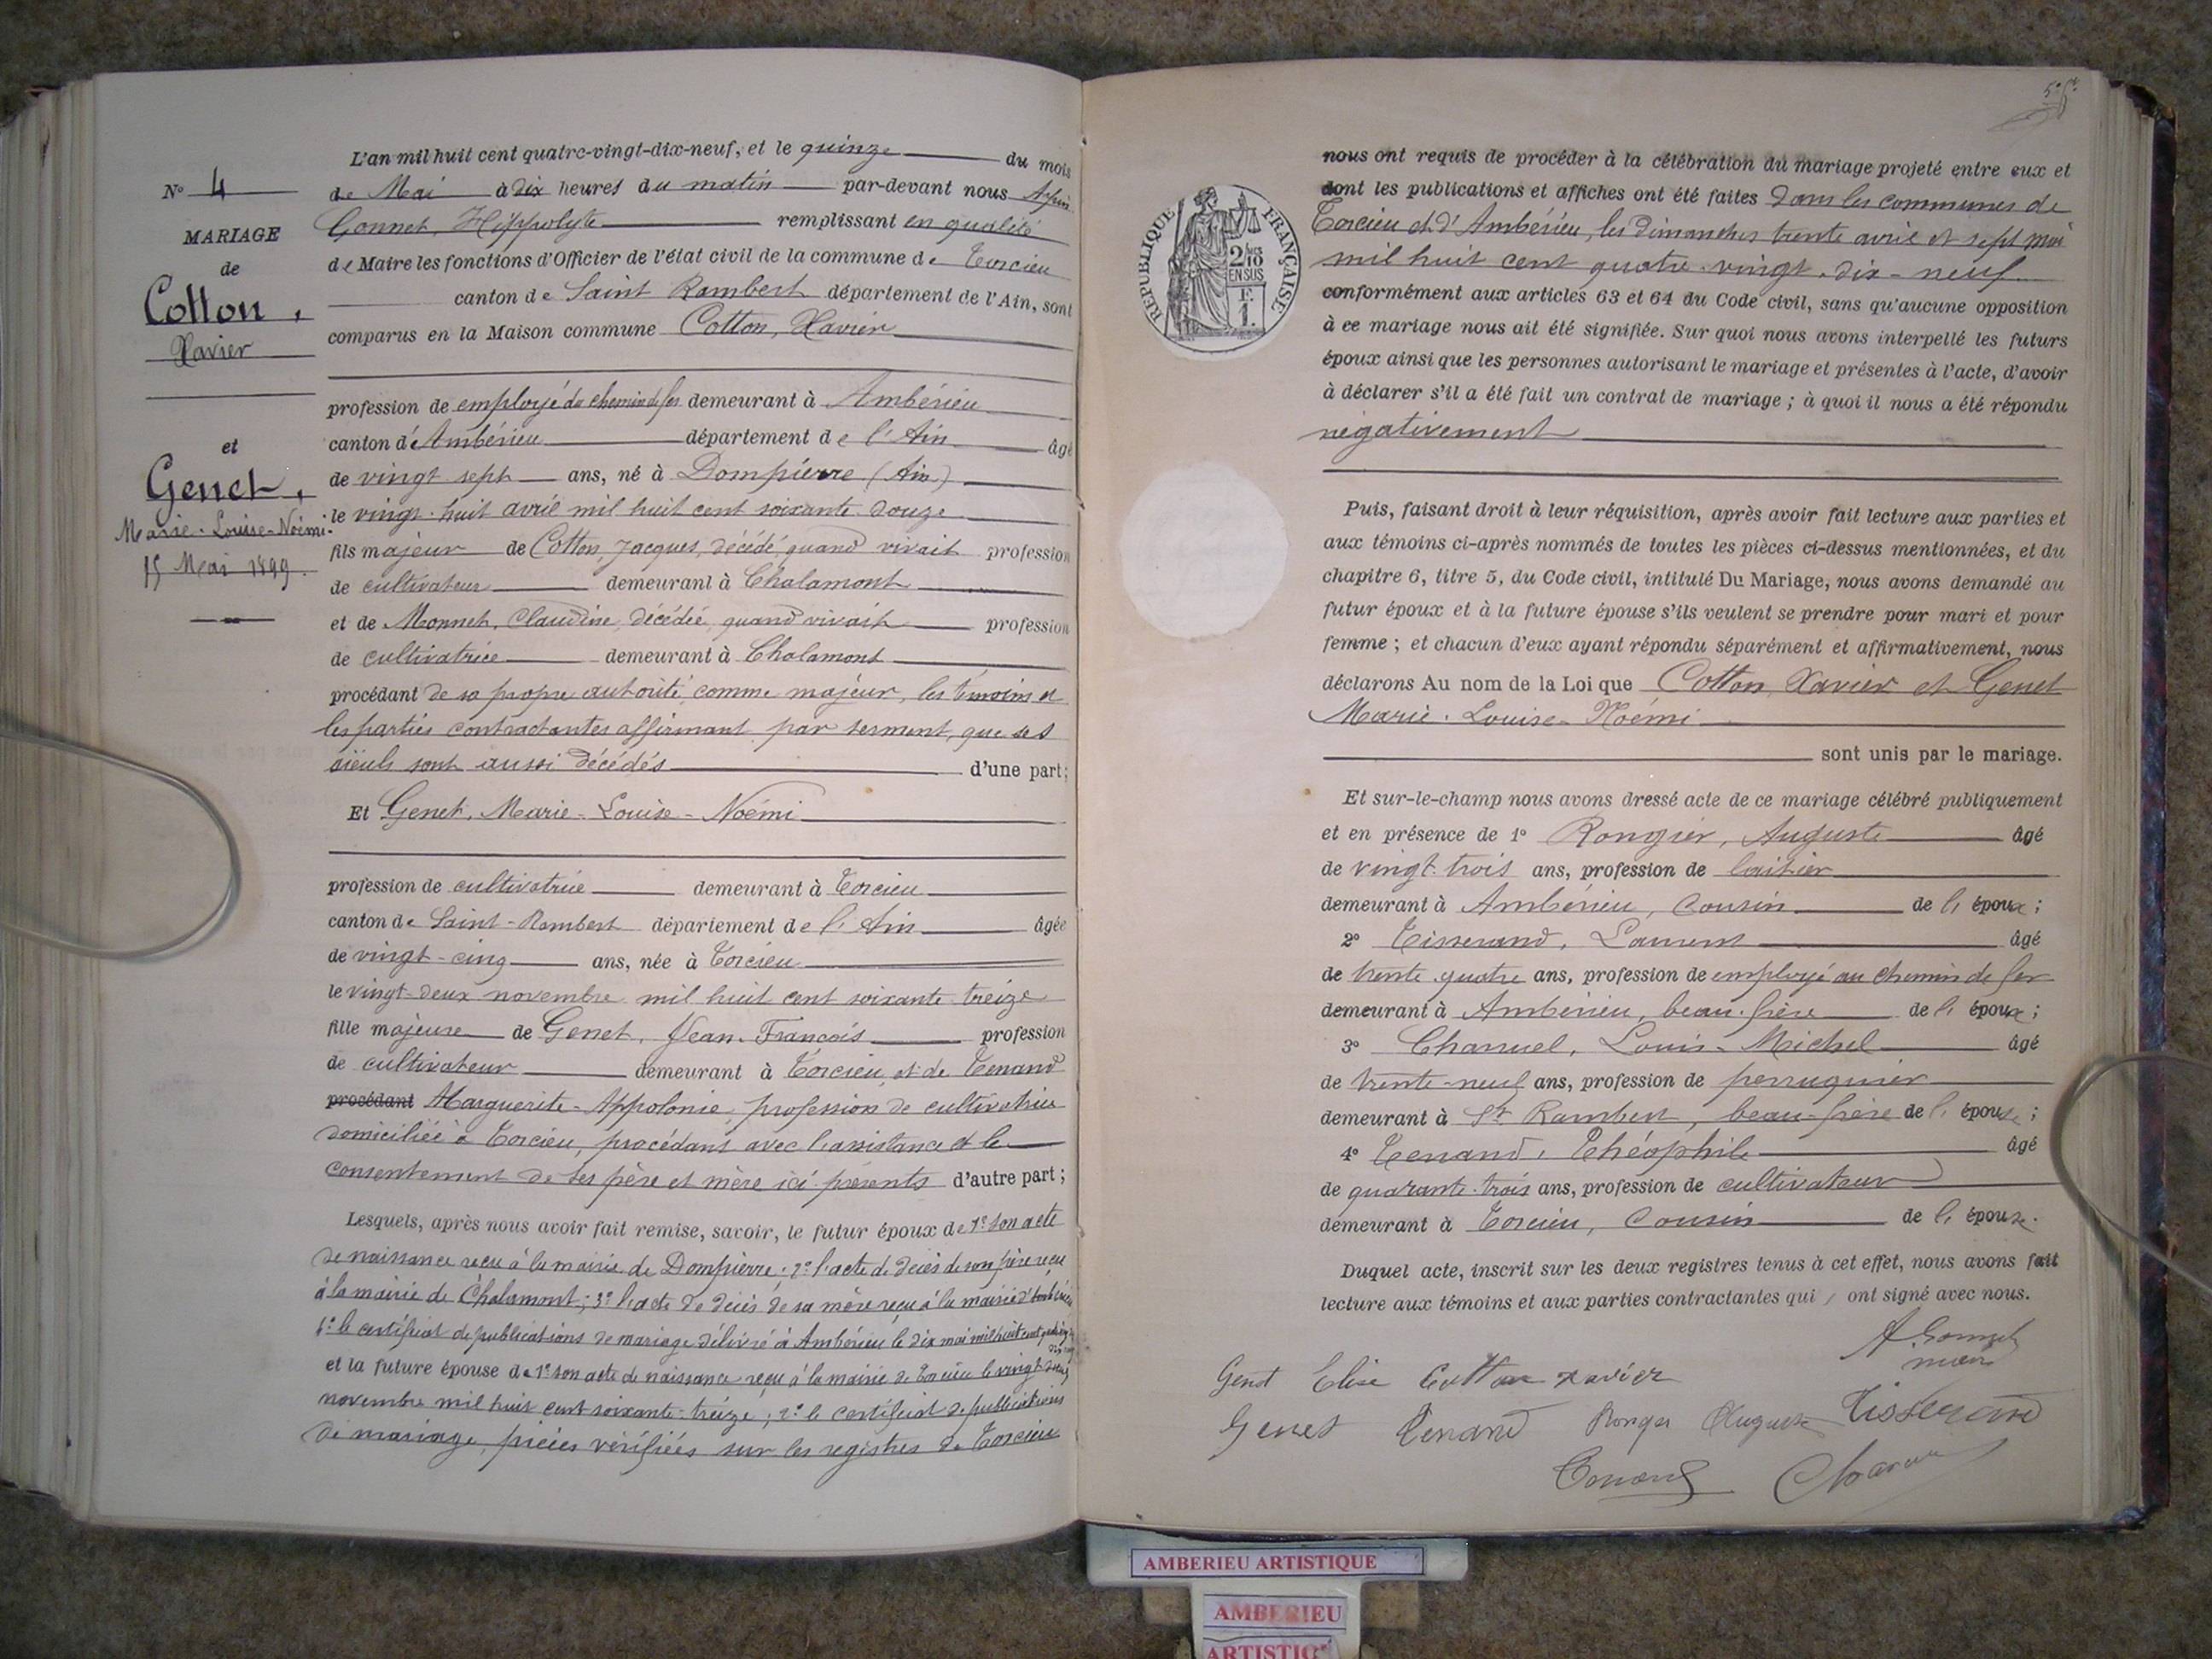 N° 4
MARIAGE
de
Cotton,
Xavier
et
Genet,
Marie-Louise-Noémi
15 Mai 1899.
L'an mil huit cent quatre-vingt-dix-neuf, et le quinze du mois
de Mai à dix heures du matin par-devant nous
Gonnet, Hippolyte remplissant en qualité
de Maire les fonctions d'Officier de l'état civil de la commune de Torcieu
canton de Saint Rambert département de l'Ain, sont
comparus en la Maison commune Cotton, Xavier
profession de employé de chemin de fer demeurant à Ambérieu
canton d'Ambérieu département de l'Ain âgé
de vingt sept ans, né à Dompierre (Ain)
le vingt-huit avril mil huit cent soixante-douze
fils majeur de Cotton, Jacques, décédé, quand vivait profession
de cultivateur demeurant à Chalamont
et de Monnet, Claudine, décédée, quand vivait profession
de cultivatrice demeurant à Chalamont
procédant de sa propre autorité comme majeur, les témoins et
les parties contractantes affirmant par serment, que ses
aïeuls sont aussi décédés d'une part;
Et Genet, Marie-Louise-Noémi
profession de cultivatrice demeurant à Torcieu
canton de Saint-Rambert département de l'Ain âgée
de vingt-cinq ans, née à Torcieu
le vingt-deux novembre mil huit cent soixante-treize
fille majeure de Genet, Jean-François profession
de cultivateur demeurant à Torcieu, et de Tenand
procédant Marguerite-Appolonie, profession de cultivatrice
domiciliée à Torcieu, procédant avec l'assistance et le
consentement de ses père et mère ici présents d'autre part;
Lesquels, après nous avoir fait remise, savoir, le futur époux de 1° son acte
de naissance reçu à la mairie de Dompierre; 2° l'acte de décès de son père reçu
à la mairie de Chalamont; 3° l'acte de décès de sa mère reçu à la mairie
4° le certificat de publications de mariage délivré à Ambérieu le dix mai mil huit cent
et la future épouse de 1° son acte de naissance reçu à la mairie de Torcieu le vingt-deux
novembre mil huit cent soixante-treize; 2° le certificat de publications
de mariage, pièces vérifiées sur les registres de Torcieu
RÉPUBLIQUE FRANÇAISE
2/10
EN SUS
F.
1.
nous ont requis de procéder à la célébration du mariage projeté entre eux et
dont les publications et affiches ont été faites dans les communes de
Torcieu et d'Ambérieu, les dimanches trente avril et sept mai
mil huit cent quatre-vingt-dix-neuf
conformément aux articles 63 et 64 du Code civil, sans qu'aucune opposition
à ce mariage nous ait été signifiée. Sur quoi nous avons interpellé les futurs
époux ainsi que les personnes autorisant le mariage et présentes à l'acte, d'avoir
à déclarer s'il a été fait un contrat de mariage; à quoi il nous a été répondu
négativement
Puis, faisant droit à leur réquisition, après avoir fait lecture aux parties et
aux témoins ci-après nommés de toutes les pièces ci-dessus mentionnées, et du
chapitre 6, titre 5, du Code civil, intitulé Du Mariage, nous avons demandé au
futur époux et à la future épouse s'ils veulent se prendre pour mari et pour
femme; et chacun d'eux ayant répondu séparément et affirmativement, nous
déclarons Au nom de la Loi que Cotton, Xavier et Genet
Marie-Louise-Noémi
sont unis par le mariage.
Et sur-le-champ nous avons dressé acte de ce mariage célébré publiquement
et en présence de 1° Rongier, Auguste âgé
de vingt-trois ans, profession de laitier
demeurant à Ambérieu, cousin de l'époux;
2° Tisserand, Laurent âgé
de trente quatre ans, profession de employé au chemin de fer
demeurant à Ambérieu, beau-frère de l'époux;
3° Charuel, Louis-Michel âgé
de trente-neuf ans, profession de perruquier
demeurant à St Rambert, beau-frère de l'épouse;
4° Tenand, Théophile âgé
de quarante-trois ans, profession de cultivateur
demeurant à Torcieu, cousin de l'épouse.
Duquel acte, inscrit sur les deux registres tenus à cet effet, nous avons fait
lecture aux témoins et aux parties contractantes qui ont signé avec nous.
Genet Elise Cotton Xavier
Genet Tenand Auguste Tisserand
AMBERIEU ARTISTIQUE
AMBERIEU
ARTISTIQ